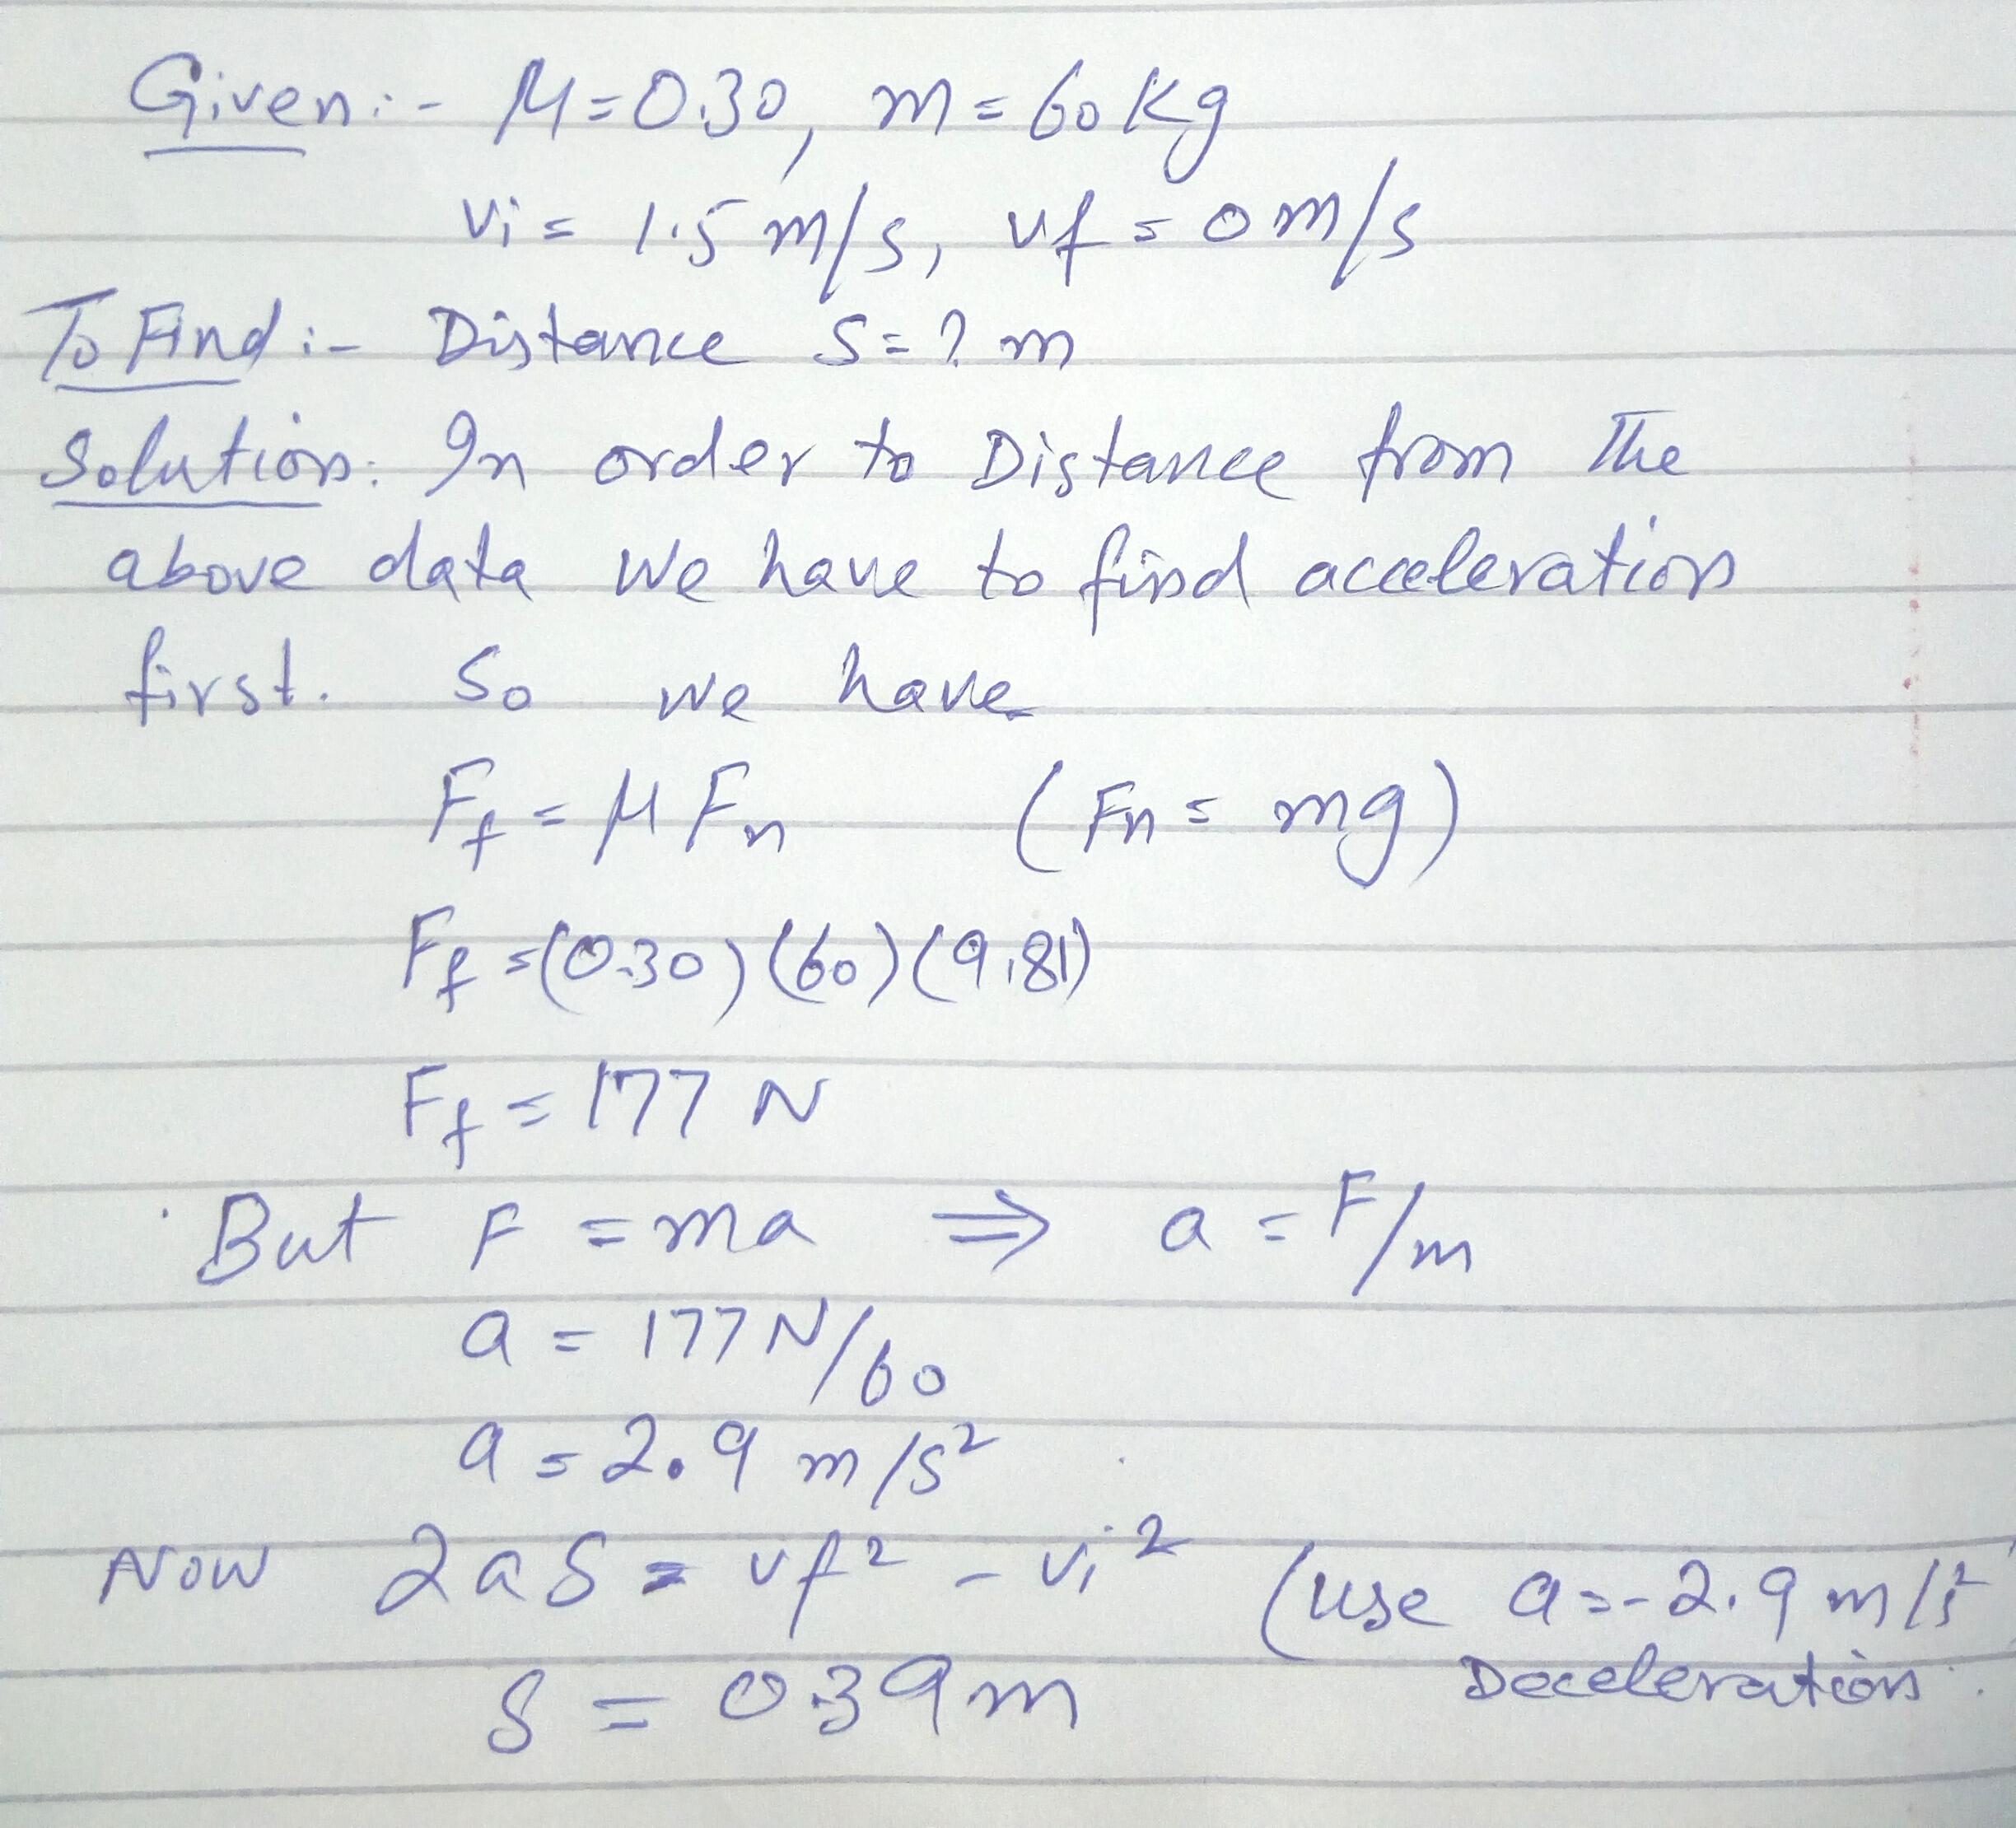 Given:- μ=0.30, m=60Kg
vi= 1.5 m/s, vf=0m/s
To Find:- Distance S=? m
Solution: In order to Distance from The
above data we have to find acceleration
first. So we have
Ff=μFn (Fn=mg)
Ff=(0.30)(60)(9.81)
Ff=177 N
But F=ma ⇒ a=F/m
a=177N/60
a=2.9 m/s²
Now 2aS=vf²-vi² (use a=-2.9 m/s²
S=0.39m Deceleration.